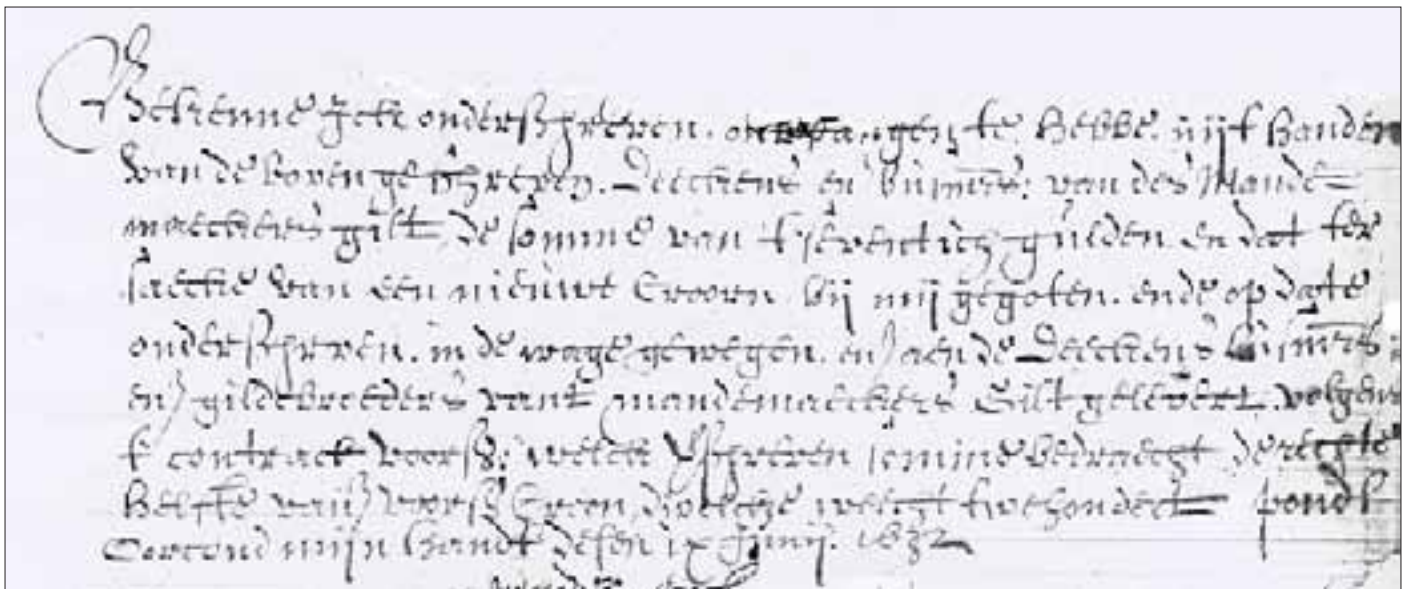 Bekenne Jck onderschreven. ontvangen te hebbe. uijt handen
van de boven geschreven. Deeckens en bussmrs: van des Mande-
maeckers gilt, de somme van tseventich gulden en dat ter
saecke van een nieuwe Croon bij mij gegoten. ende op date
onderschreven. in de wage gewegen. en aen de Deeckens bussmrs
en gildebroeders vant mandemaeckers Gilt gelevert. volgens
t contract voors: welck vschreven somme bedraecht de rechte
helfte van voors Croon, dwelcke weecht twehondert pondt
Oorcond mijn handt desen ix Junij. 1632